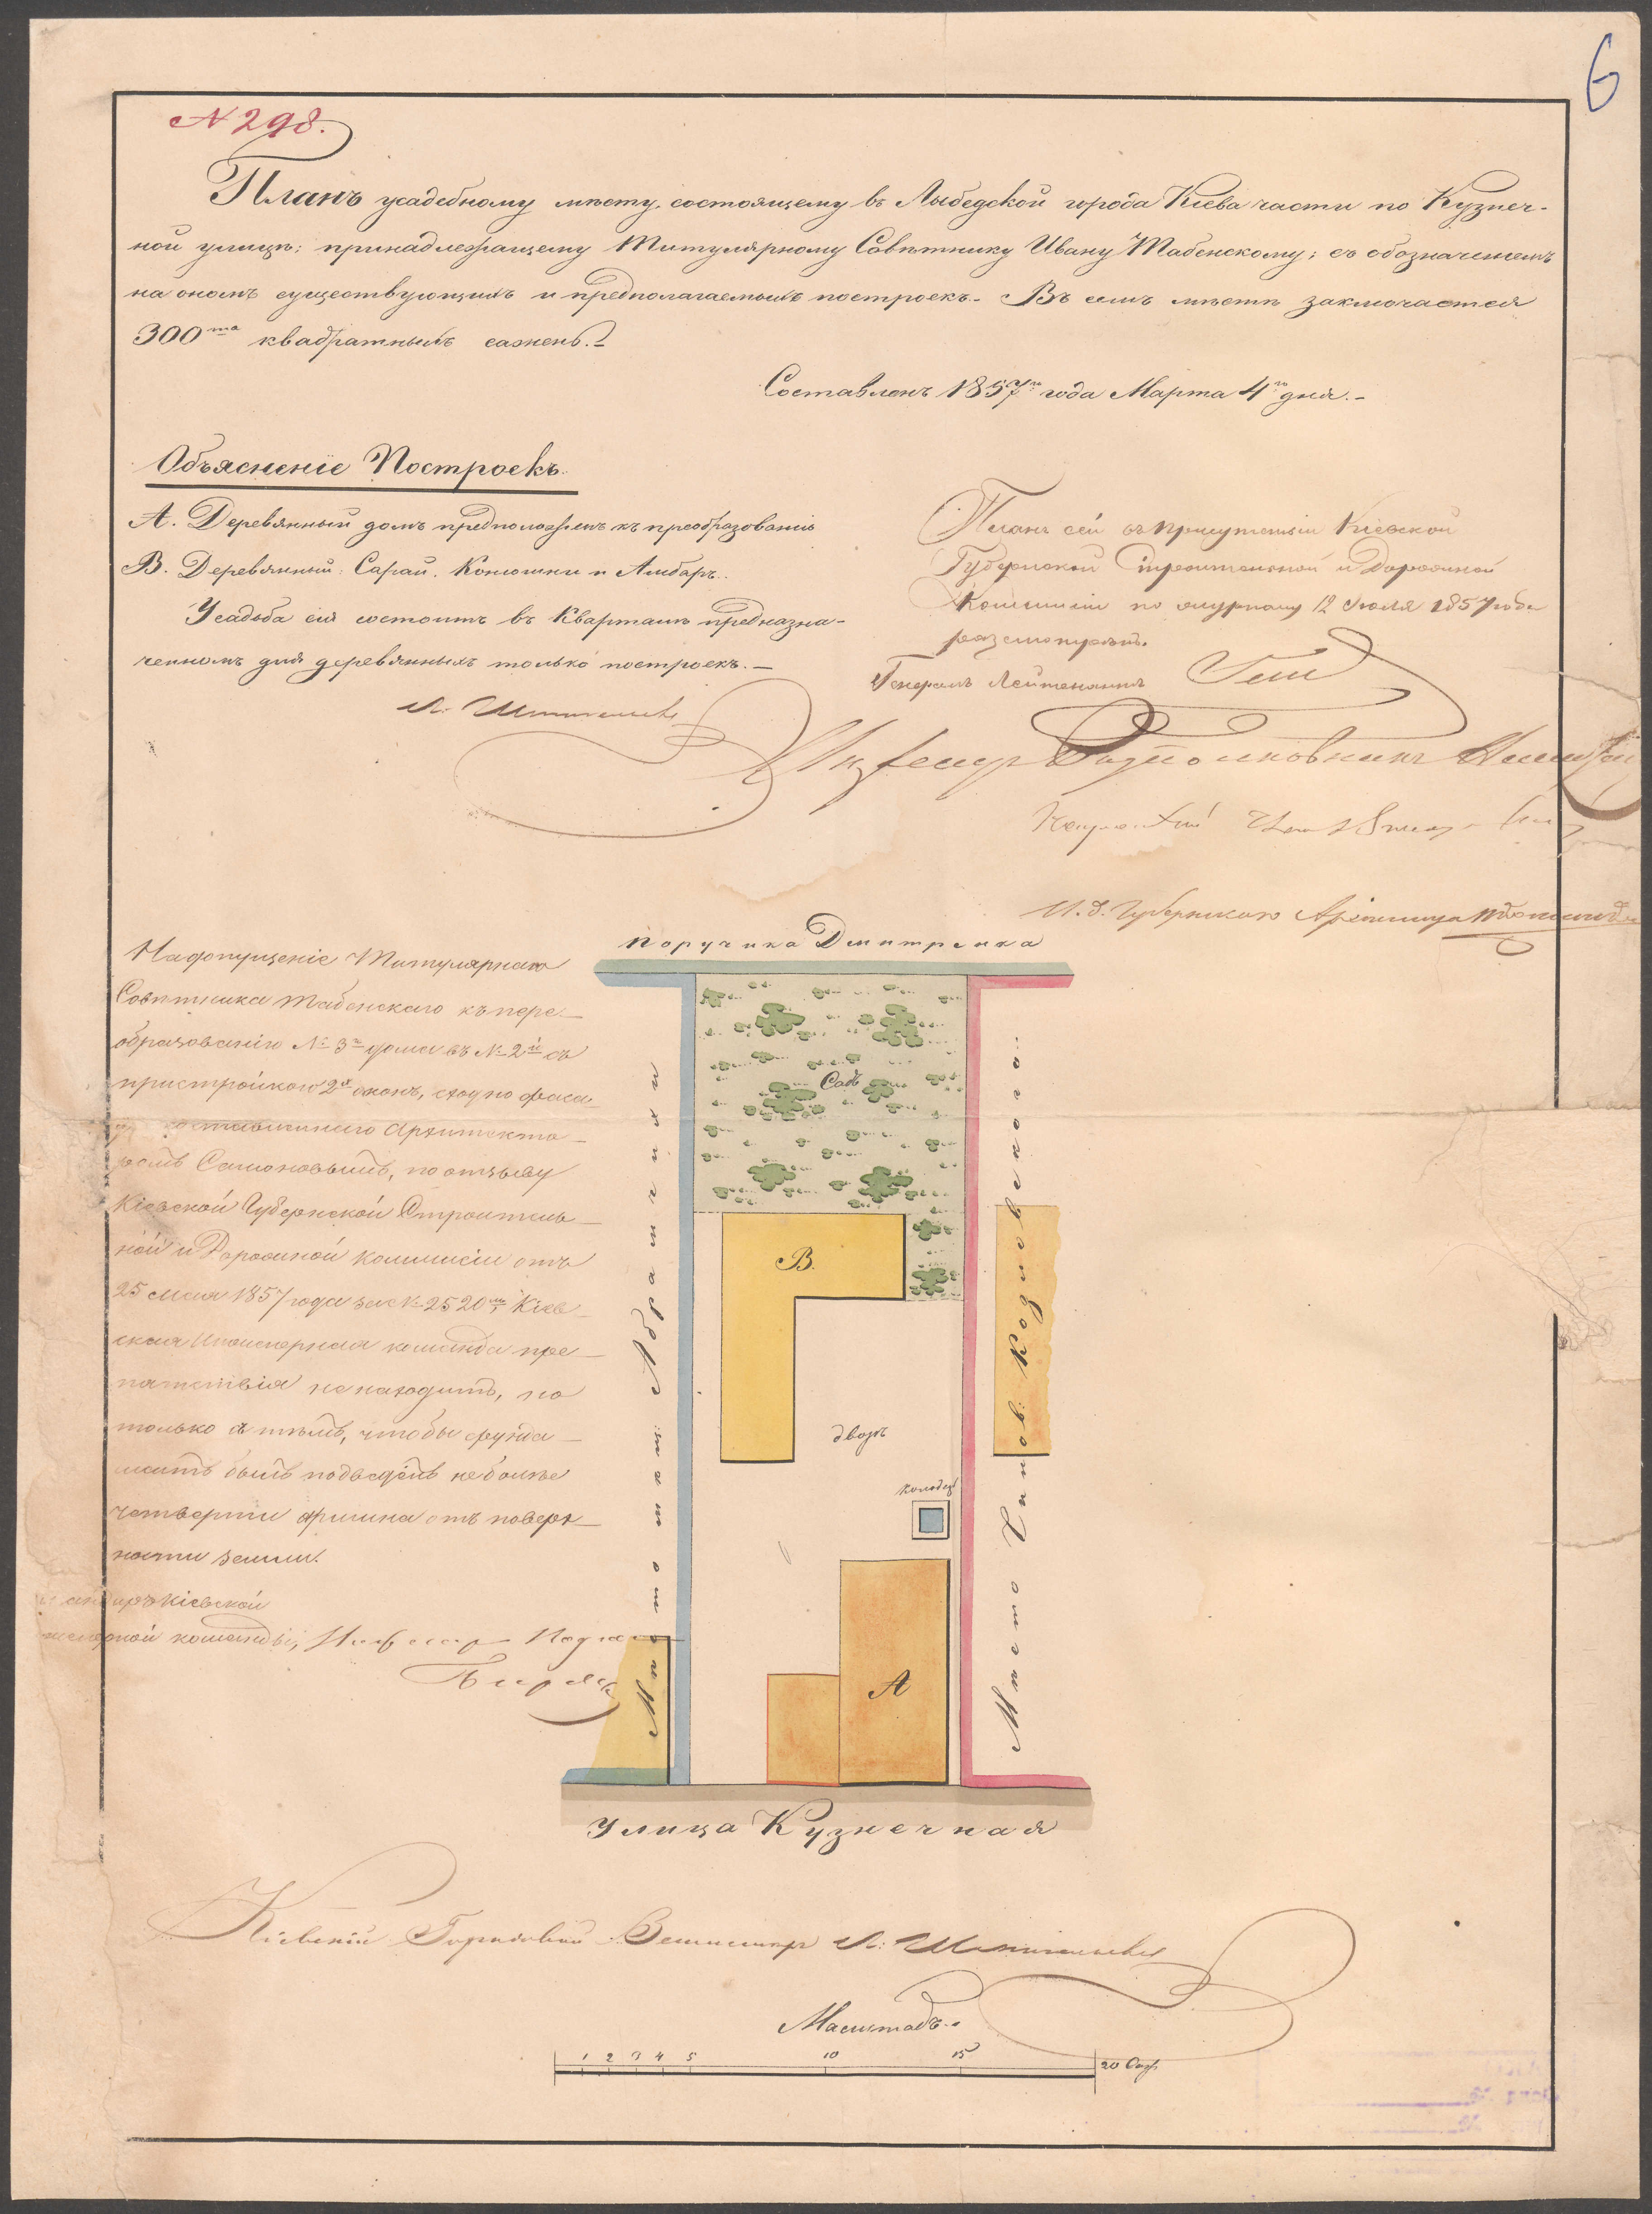 6
N 298.
Планъ усадебному мѣсту, состоящему въ Лыбедской города Кіева части по Кузнеч-
ной улицѣ; принадлежащему Титулярному Совѣтнику Ивану Табенскому; съ обозначеніемъ
на ономъ существующихъ и предполагаемыхъ построекъ. Въ семъ мѣстѣ заключается
300та квадратныхъ сажень.
Составленъ 1857го года Марта 4го дня.
Объясненіе Построекъ.
А. Деревянный домъ предположенъ къ преобразованію
В. Деревянный: Сарай, Конюшни и Амбаръ.
Усадьба сія состоитъ въ Кварталѣ предназна-
ченномъ для деревянныхъ только построекъ.
Планъ сей въ присутствіи Кіевской
Губернской Строительной и Дорожной
Коммисіи по журналу 12 Іюля 1857 года
разсмотрѣнъ.
Генералъ Лейтенантъ
Инженеръ Подполковникъ
И. д. Губернскаго Архитектора
Поручика Дмитренка
На допущеніе Титулярнаго
Совѣтника Табенскаго къ пере-
образованію № 3го дома въ № 2й съ
пристройкою 2х оконъ, по фаса-
Архитекто-
ромъ по отзыву
Кіевской Губернской Строитель-
ной и Дорожной Коммисіи отъ
25 мая 1857 года за № 2520м, Кіев-
ская Инженерная команда пре-
пятствія не находитъ, но
только съ тѣмъ, чтобы фунда-
ментъ былъ подведенъ не болѣе
четверти аршина отъ поверх-
ности земли.
Кіевской
команды, Инженеръ
Садъ
В.
дворъ
колодезь
А
Мѣсто мѣщ: Абрамчихи
Мѣсто Чинов: Козловскаго
Улица Кузнечная
Кіевскій Городовой Землемѣръ
Масштабъ.
1 2 3 4 5 10 15 20 Саж.